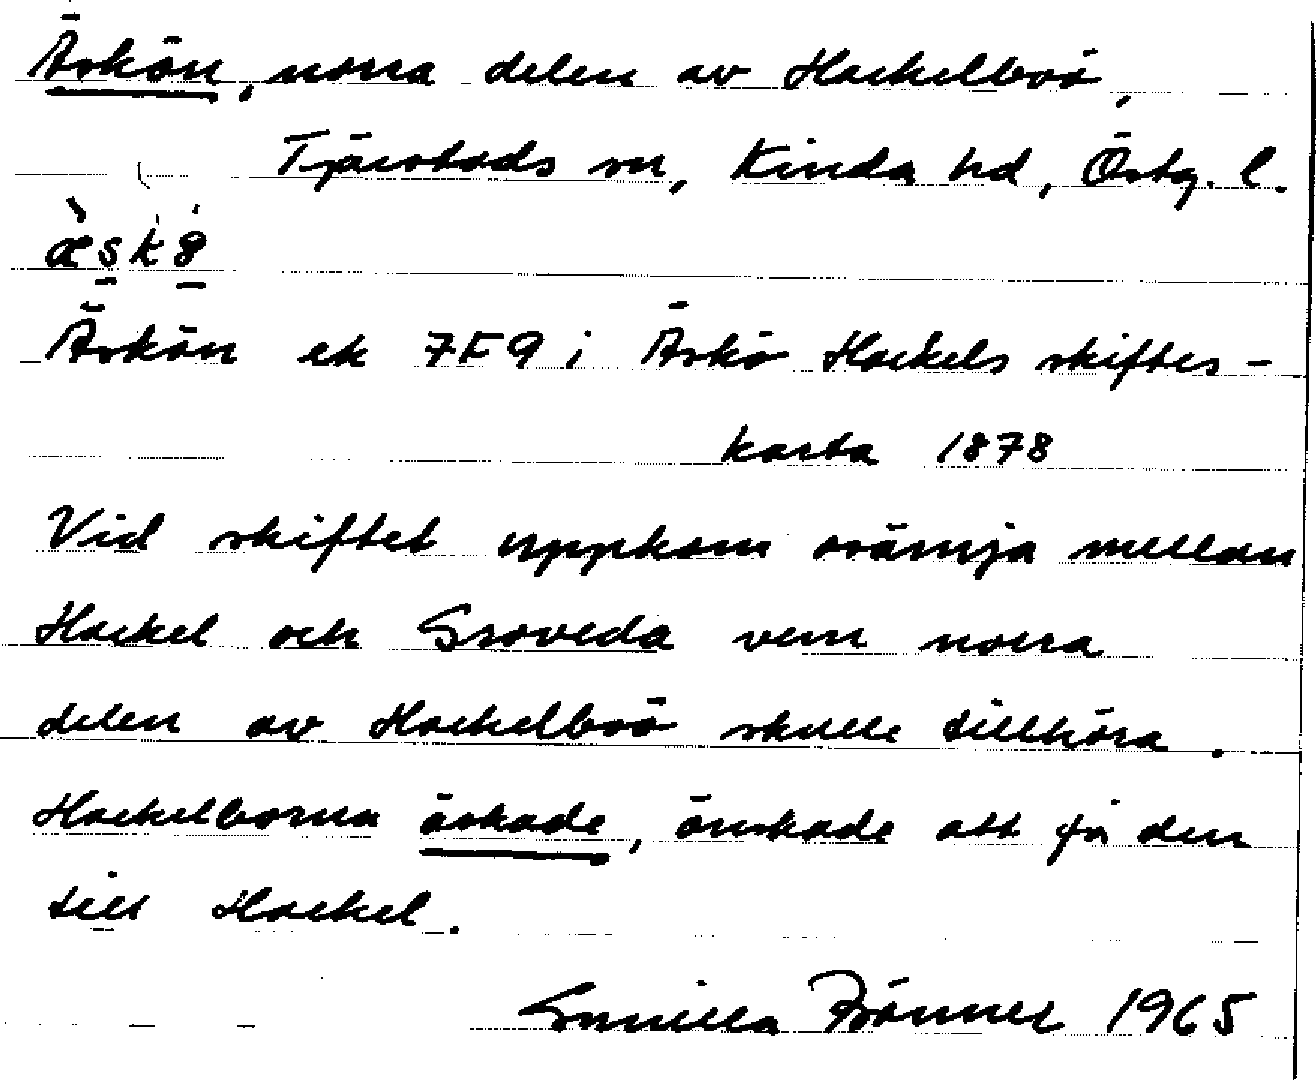 Äskön, norra delen av Hackelboö,
Tjärstads sn, Kinda hd, Östg. l.
Äskön ek 7F9i Äskö Hackels skiftes-
karta 1878
Vid skiftet uppkom osämja mellan
Hackel och Groveda vem norra
delen av Hackelboö skulle tillhöra.
Hackelborna äskade, önskade att få den
till Hackel.
Gunilla 1965